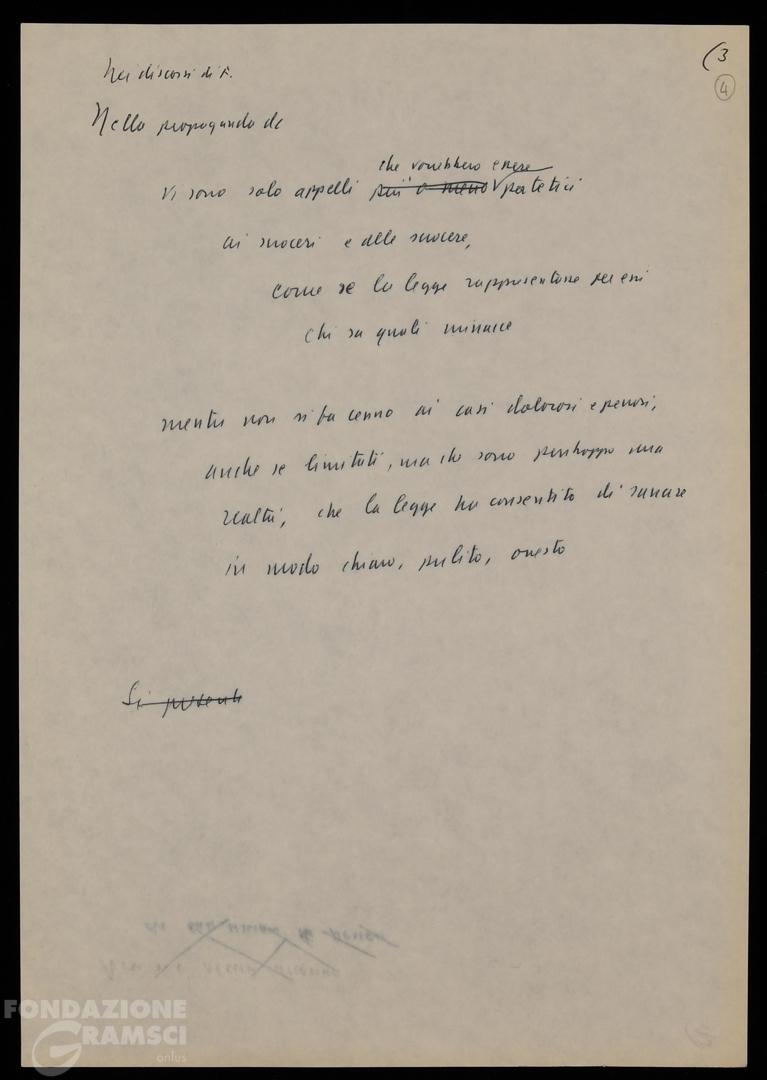 (3
4
Nei discorsi di F.
Nella propaganda dc
che vorrebbero essere
Vi sono solo appelli più o meno patetici
ai suoceri e alle suocere,
come se la legge rappresentasse per essi
chi sa quali minacce
mentre non si fa cenno ai casi dolorosi e penosi,
anche se limitati, ma che sono purtroppo una
realtà, che la legge ha consentito di sanare
in modo chiaro, pulito, onesto
Si presenta
FONDAZIONE
GRAMSCI
onlus